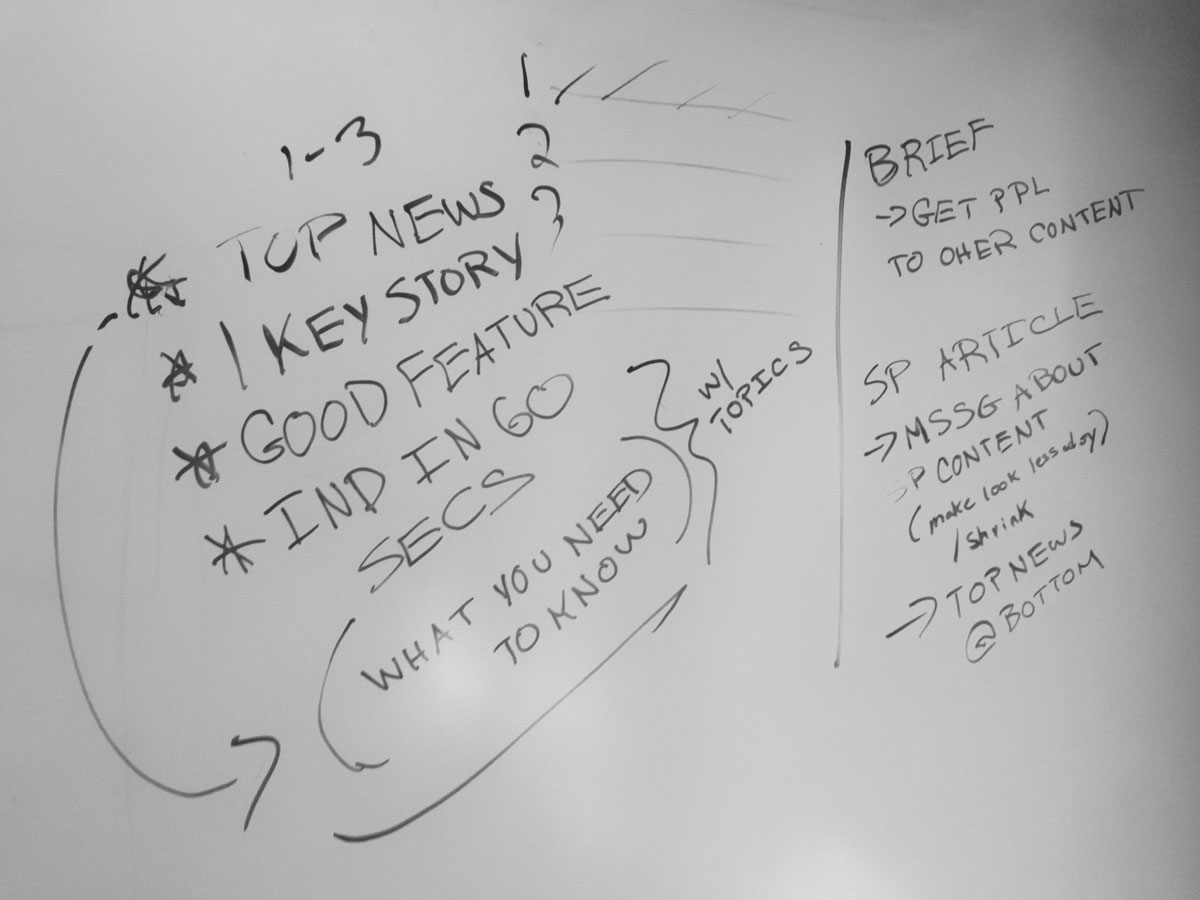 1-3
* TOP NEWS
* 1 KEY STORY
* GOOD FEATURE
* IND IN 60
SECS
(WHAT YOU NEED
TO KNOW)
1
2
3
W/
TOPICS
BRIEF
→ GET PPL
TO OHER CONTENT
SP ARTICLE
→ MSSG ABOUT
SP CONTENT
(make look less adsy)
/shrink
→ TOP NEWS
@ BOTTOM